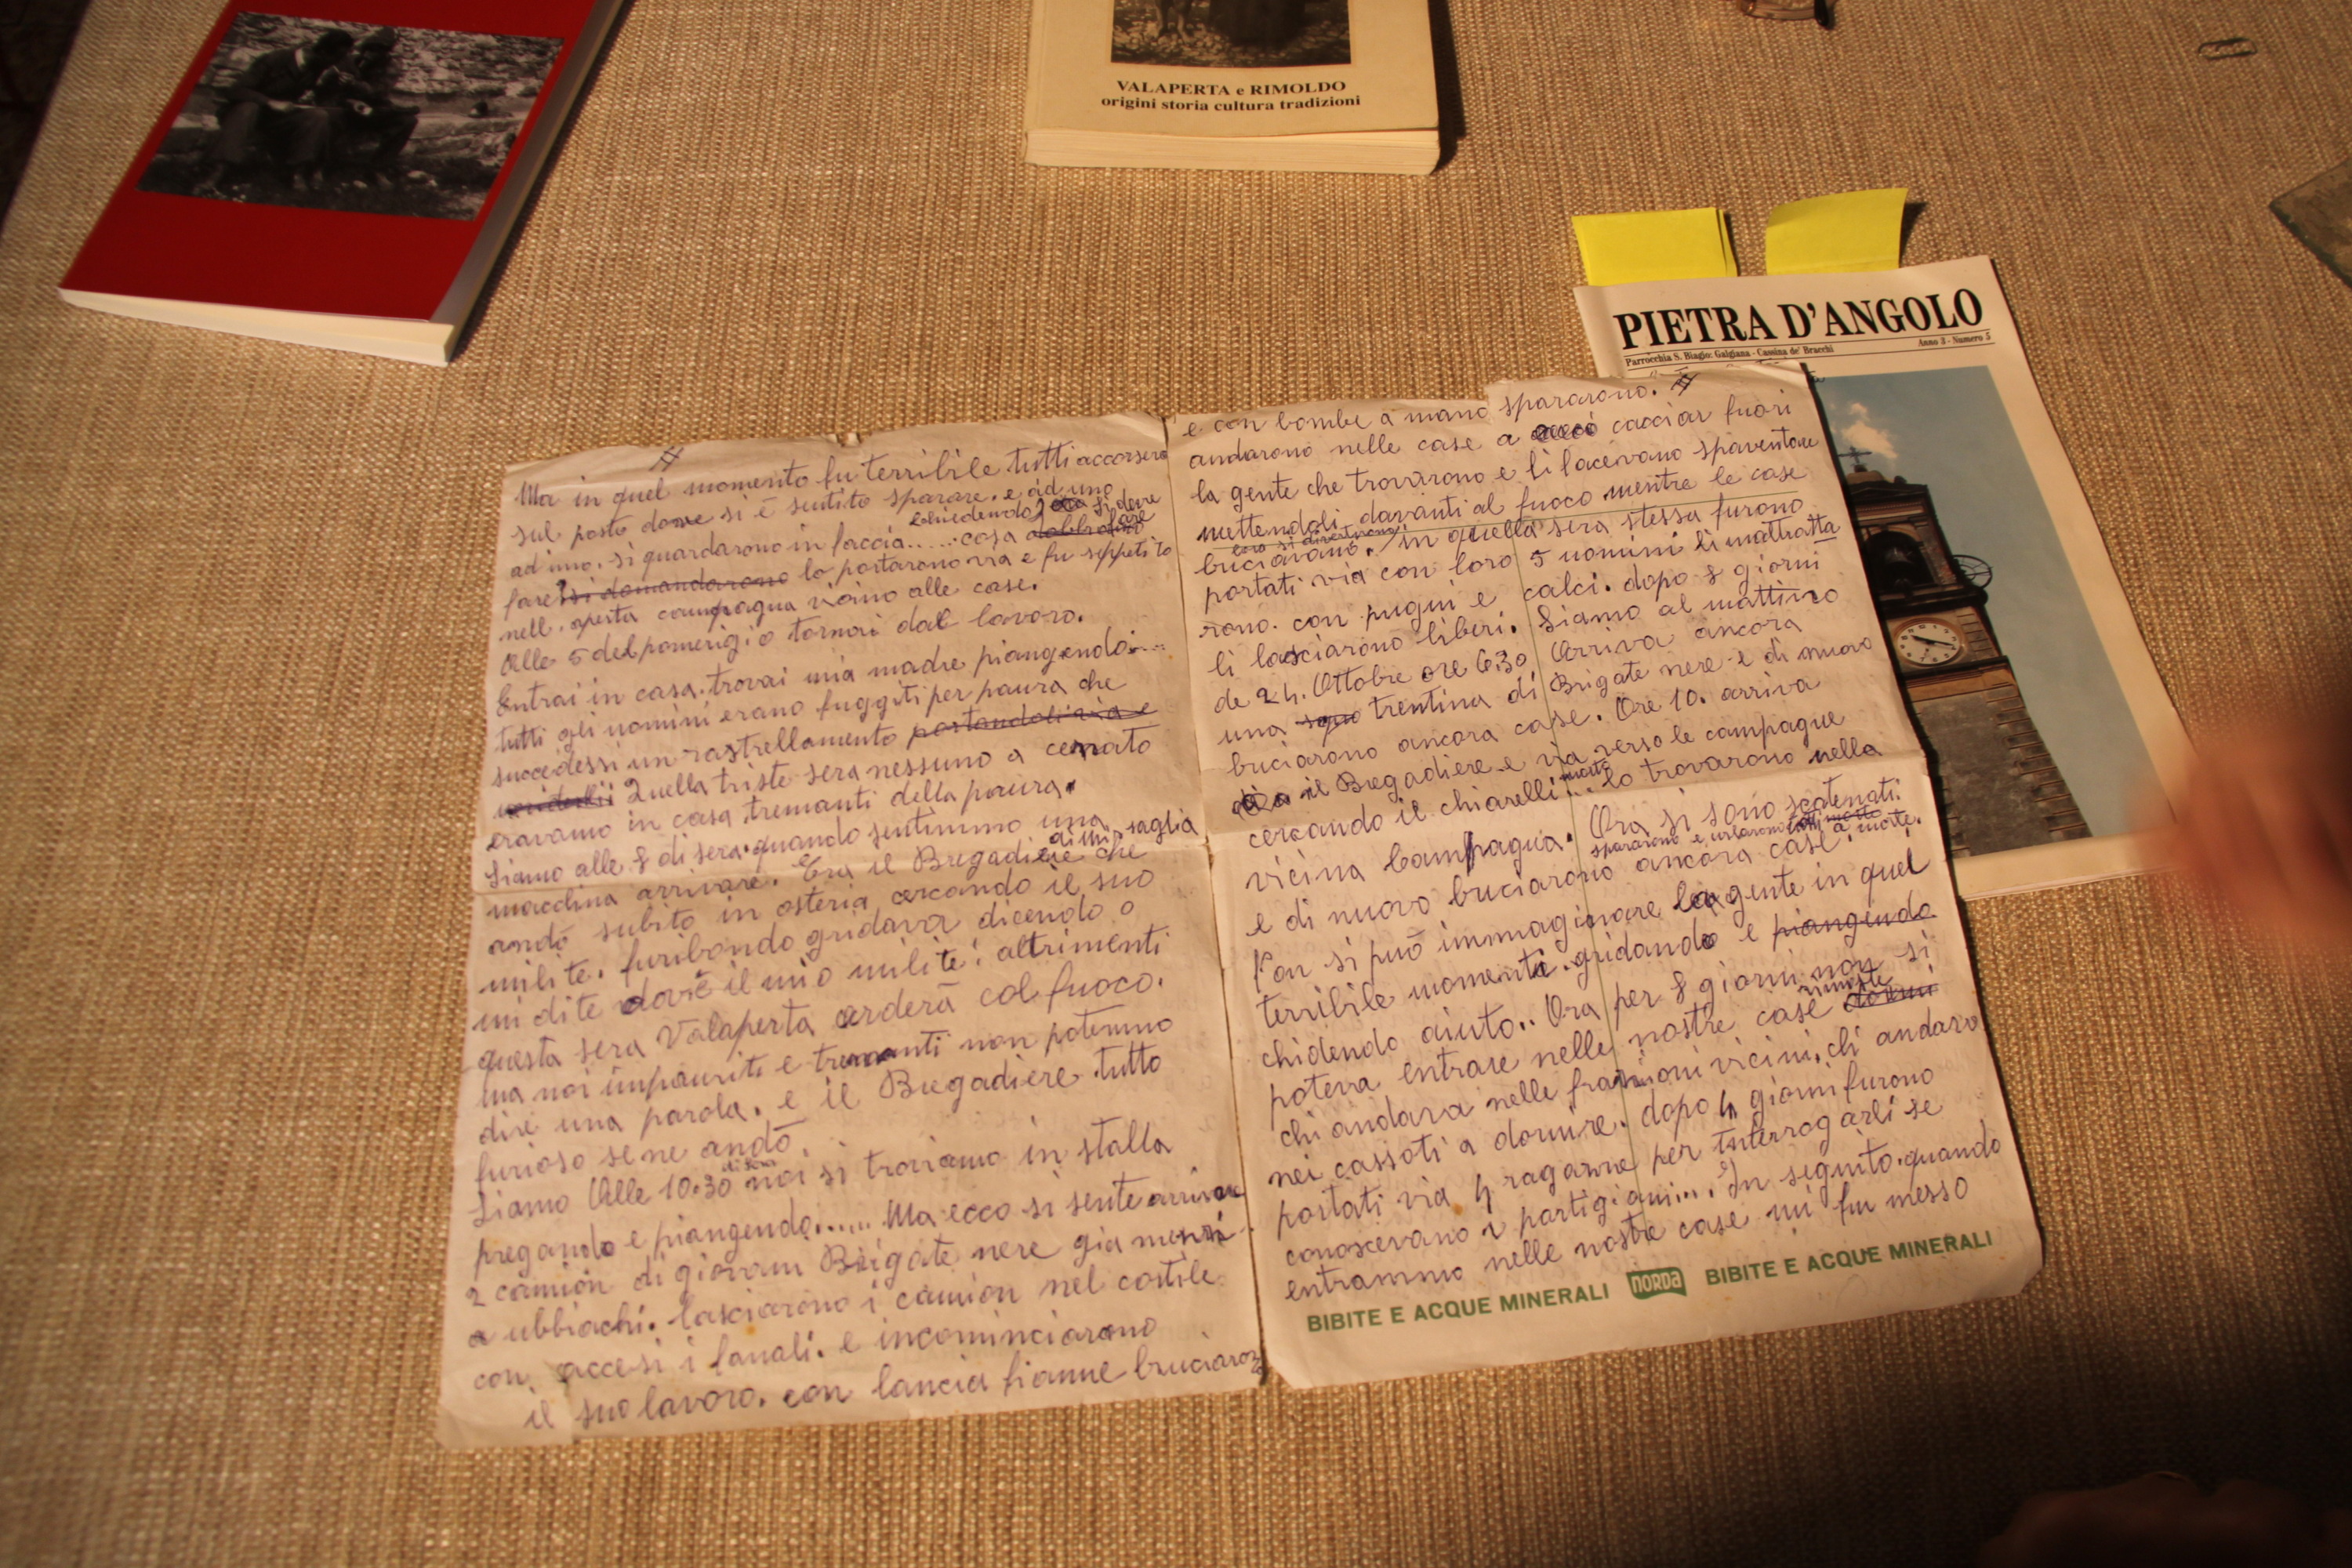 VALAPERTA e RIMOLDO
origini storia cultura tradizioni
PIETRA D'ANGOLO
Parrocchia S. Biagio: Galgiana - Cassina de' Bracchi
Anno 3 - Numero 5
II
Ma in quel momento fu terribile tutti accorsero
sul posto dove si è sentito sparare. e ad uno
chiedendo si deve
ad uno. si guardarono in faccia...... cosa
fare
fare? si domandarono lo portarono via e fu seppelito
nell. aperta campagna vicino alle case.
Alle 5 del pomerigio tornai dal lavoro.
Entrai in casa. trovai mia madre piangendo....
tutti gli uomini erano fuggiti per paura che
succedessi un rastrellamento portandoli via e
Quella triste sera nessuno a cenato
eravamo in casa tremanti della paura.
Siamo alle 8 di sera. quando sentimmo una
macchina arrivare. Era il Bregadiere che
di Missaglia
andò subito in osteria cercando il suo
milite. furibondo gridava dicendo o
mi dite dov'è il mio milite! altrimenti
questa sera Valaperta arderà col fuoco.
ma noi impauriti e tremanti non potemmo
dire una parola. e il Bregadiere tutto
furioso se ne andò.
di sera
Siamo Alle 10.30 noi si troviamo in stalla
pregando e piangendo...... Ma ecco si sente arrivare
2 camion di giovani Brigate nere gia mezzi
a ubbriachi. lasciarono i camion nel cortile
con accesi i fanali. e incominciarono
il suo lavoro. con lancia fiamme bruciarono
e con bombe a mano spararono. II
andarono nelle case a cacciar fuori
la gente che trovarono e li facevano spaventare
mettendoli davanti al fuoco mentre le case
loro si divertirono
buciavano. in quella sera stessa furono
portati via con loro 5 uomini li maltratta
rono. con pugni e calci. dopo 8 giorni
li lasciarono liberi. Siamo al mattino
de 24. Ottobre ore 6.30 Arriva ancora
una trentina di Brigate nere e di nuovo
buciarono ancora case. Ore 10. arriva
il Bregadiere e via verso le campague
morto
cercando il chiarelli... lo trovarono nella
vicina Campagna. Ora si sono scatenati.
spararono e urlarono tutti a morte.
e di nuovo buciarono ancora case.
Non si può immaginare la gente in quel
terribile momento. gridando e piangendo
chidendo aiuto.. Ora per 8 giorni non si
poteva entrare nelle nostre case rimaste
chi andava nelle frazioni vicini. chi andava
nei cassoti a dormire. dopo 4 giorni furono
portati via 4 ragazze per interrogarli se
conoscevano i partigiani.... In seguito. quando
entrammo nelle nostre case mi fu messo
BIBITE E ACQUE MINERALI NORDA BIBITE E ACQUE MINERALI